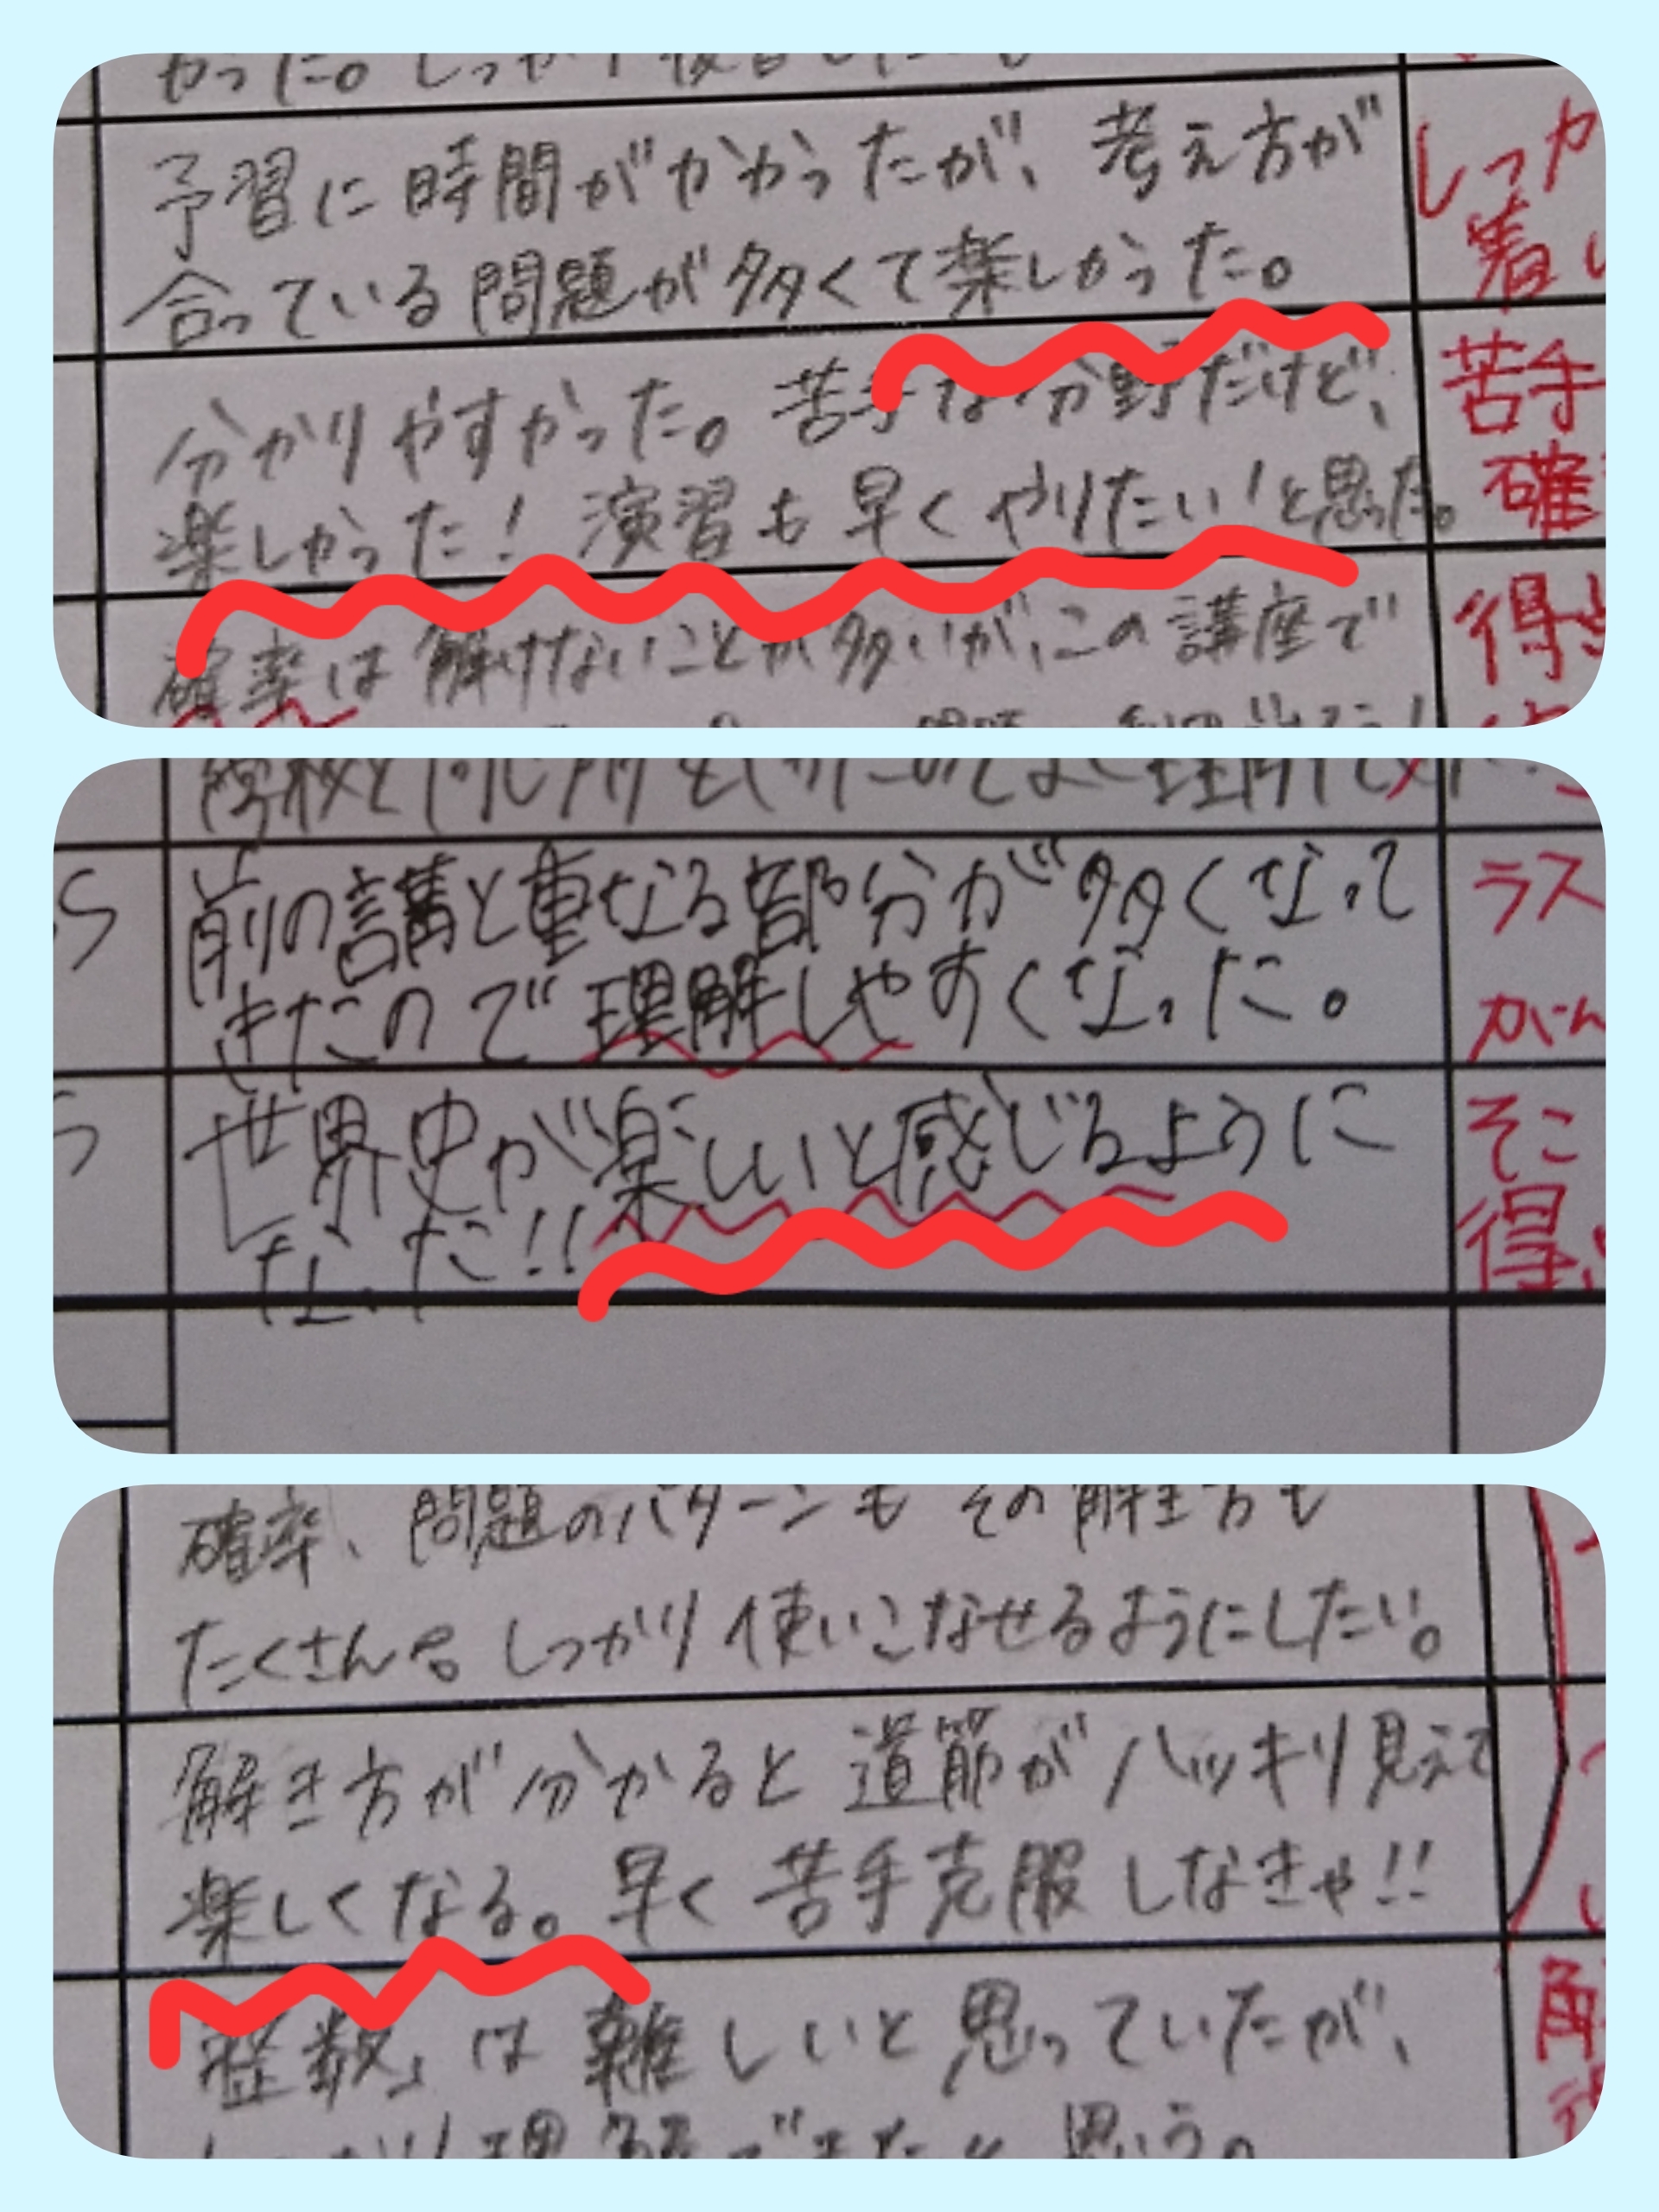 かった。しっかり復習したい
予習に時間がかかったが、考え方が
合っている問題が多くて楽しかった。
分かりやすかった。苦手な分野だけど、
楽しかった！演習も早くやりたい！と思った。
確率は解けないことが多いが、この講座で
しっか
着
苦手
確
得
前の講と重なる部分が多くなって
きたので理解しやすくなった。
世界史が楽しいと感じるように
なった!!
ラス
がん
そこ
得
確率、問題のパターンもその解き方も
たくさん。しっかり使いこなせるようにしたい。
解き方が分かると道筋がハッキリ見えて
楽しくなる。早く苦手克服しなきゃ!!
整数」は難しいと思っていたが、
理解できたと思う。
解